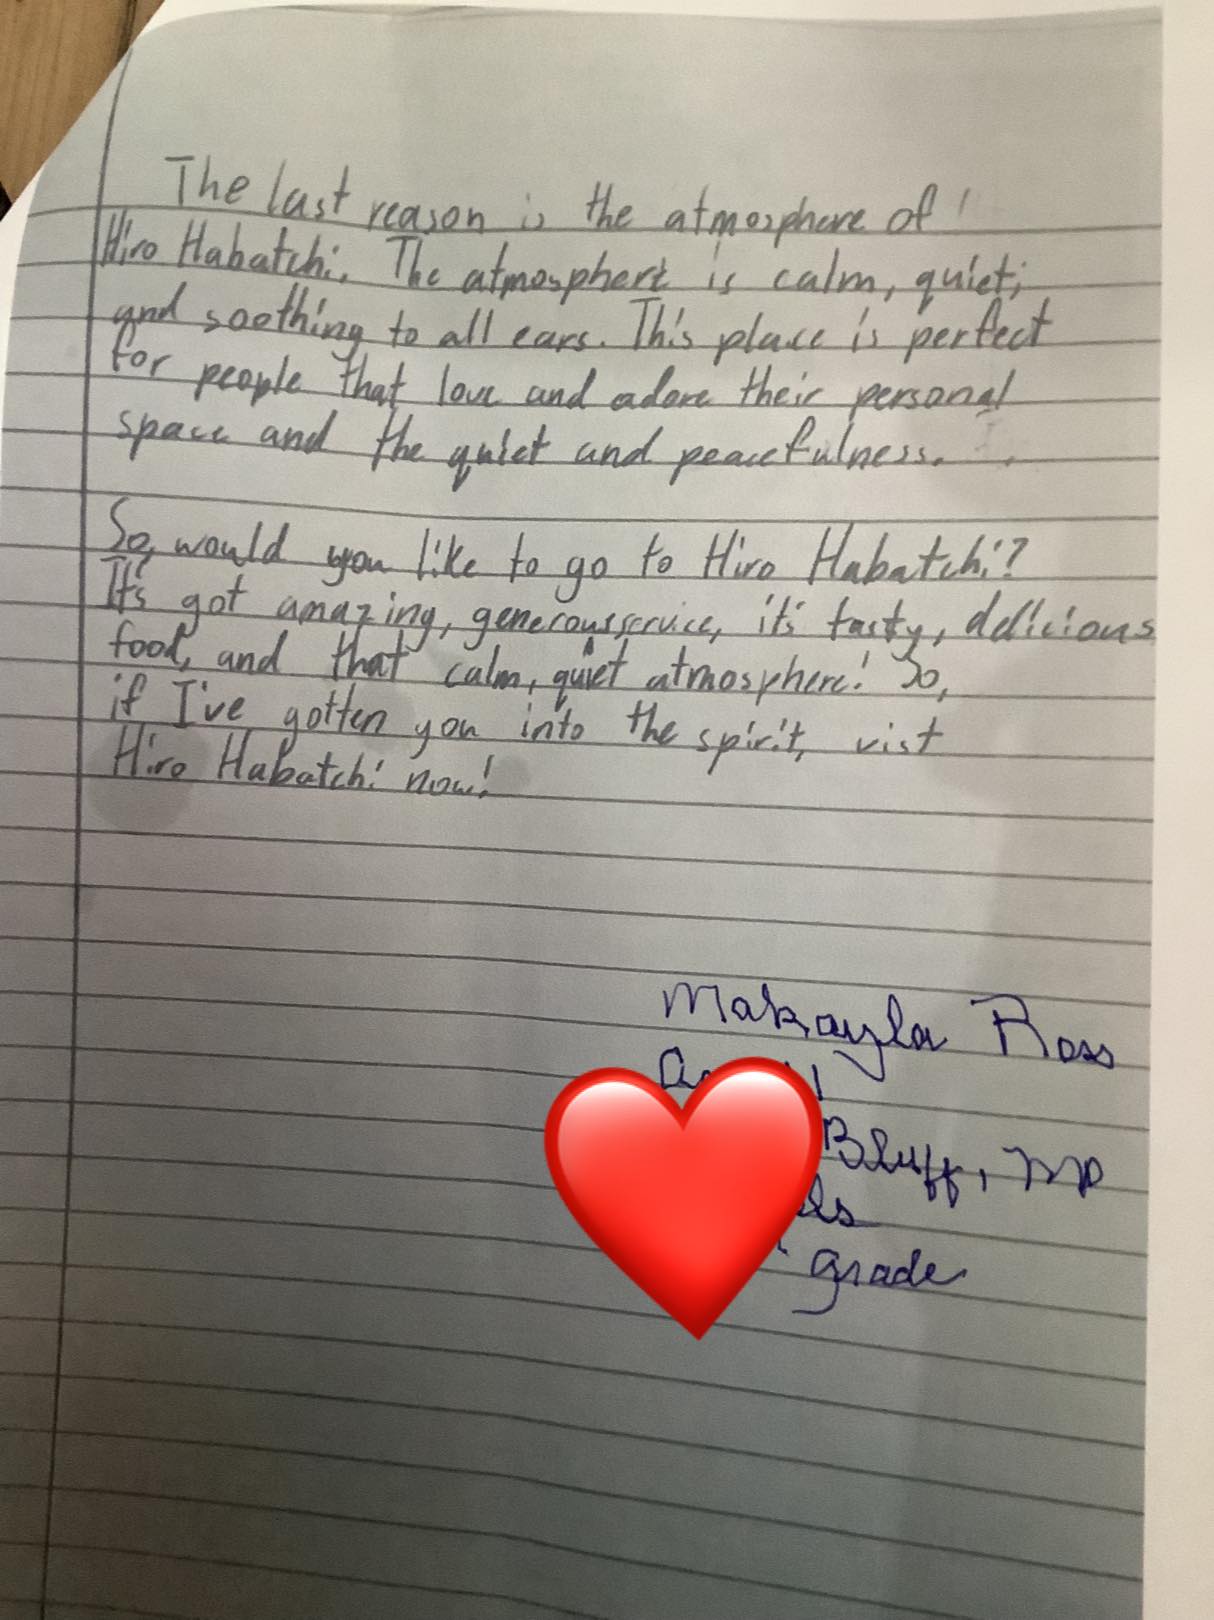 The last reason is the atmosphere of
Hiro Habatchi. The atmosphere is calm, quiet,
and soothing to all ears. This place is perfect
for people that love and adore their personal
space and the quiet and peacefulness.
So, would you like to go to Hiro Habatchi?
It's got amazing, generous service, it's tasty, delicious
food, and that calm, quiet atmosphere! So,
if I've gotten you into the spirit, vist
Hiro Habatchi now!
Makayla Ross
Bluff, MO
grade